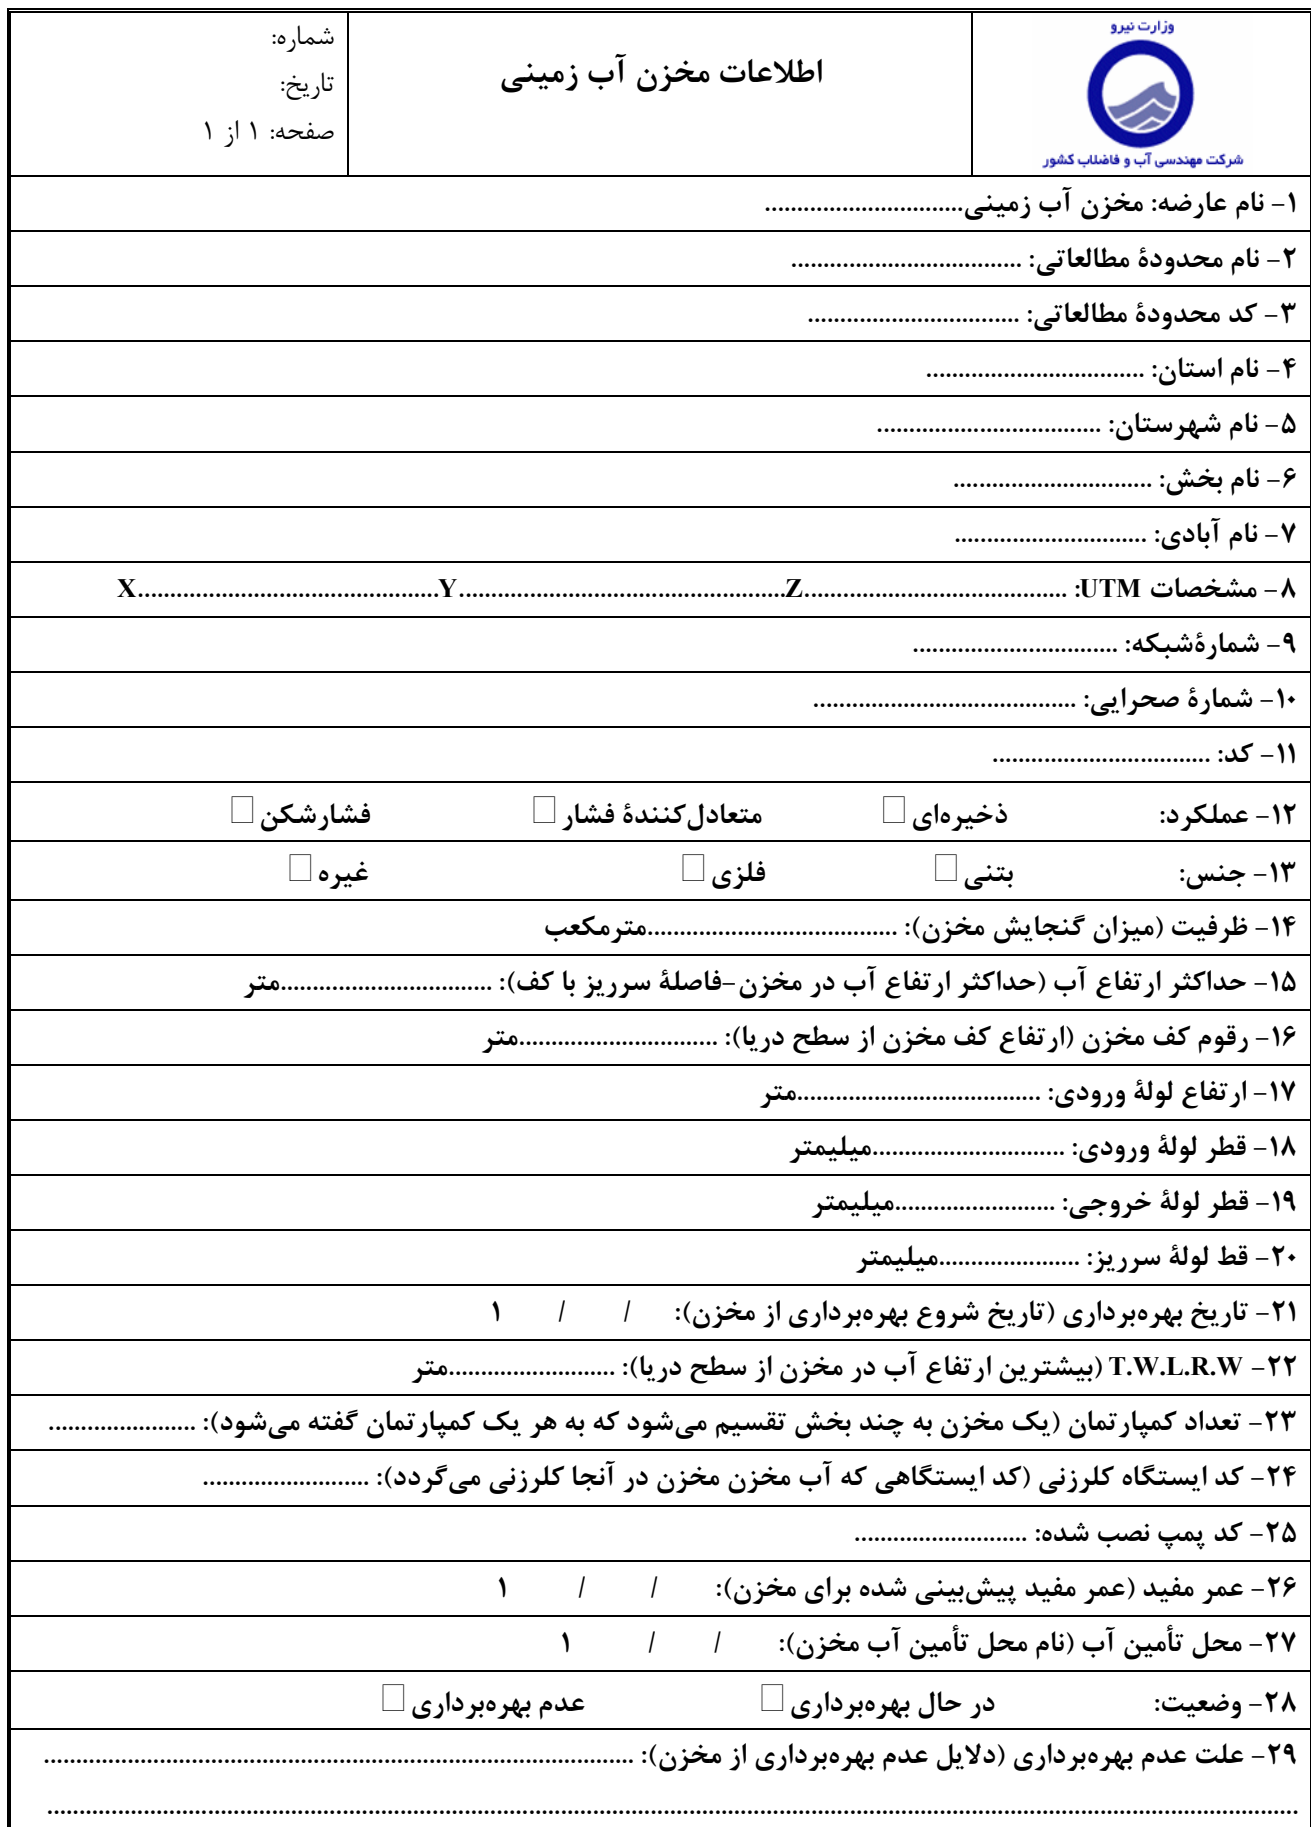 وزارت نیرو
شرکت مهندسی آب و فاضلاب کشور
اطلاعات مخزن آب زمینی
شماره:
تاریخ:
صفحه: ۱ از ۱
۱- نام عارضه: مخزن آب زمینی...............................
۲- نام محدودهٔ مطالعاتی: ....................................
۳- کد محدودهٔ مطالعاتی: .................................
۴- نام استان: ..................................
۵- نام شهرستان: ...................................
۶- نام بخش: ...............................
۷- نام آبادی: ..............................
۸- مشخصات UTM: .........................................Z...................................................Y...............................................X
۹- شمارهٔشبکه: ................................
۱۰- شمارهٔ صحرایی: .........................................
۱۱- کد: ..................................
۱۲- عملکرد: ذخیره‌ای □ متعادل‌کنندهٔ فشار □ فشارشکن □
۱۳- جنس: بتنی □ فلزی □ غیره □
۱۴- ظرفیت (میزان گنجایش مخزن): .......................................مترمکعب
۱۵- حداکثر ارتفاع آب (حداکثر ارتفاع آب در مخزن-فاصلهٔ سرریز با کف): .................................متر
۱۶- رقوم کف مخزن (ارتفاع کف مخزن از سطح دریا): ...............................متر
۱۷- ارتفاع لولهٔ ورودی: ......................................متر
۱۸- قطر لولهٔ ورودی: ..............................میلیمتر
۱۹- قطر لولهٔ خروجی: .........................میلیمتر
۲۰- قط لولهٔ سرریز: ......................میلیمتر
۲۱- تاریخ بهره‌برداری (تاریخ شروع بهره‌برداری از مخزن): / / ۱
۲۲- T.W.L.R.W (بیشترین ارتفاع آب در مخزن از سطح دریا): ..........................متر
۲۳- تعداد کمپارتمان (یک مخزن به چند بخش تقسیم می‌شود که به هر یک کمپارتمان گفته می‌شود): .......................
۲۴- کد ایستگاه کلرزنی (کد ایستگاهی که آب مخزن مخزن در آنجا کلرزنی می‌گردد): ..........................
۲۵- کد پمپ نصب شده: ...........................
۲۶- عمر مفید (عمر مفید پیش‌بینی شده برای مخزن): / / ۱
۲۷- محل تأمین آب (نام محل تأمین آب مخزن): / / ۱
۲۸- وضعیت: در حال بهره‌برداری □ عدم بهره‌برداری □
۲۹- علت عدم بهره‌برداری (دلایل عدم بهره‌برداری از مخزن): ............................................................................................
....................................................................................................................................................................................................